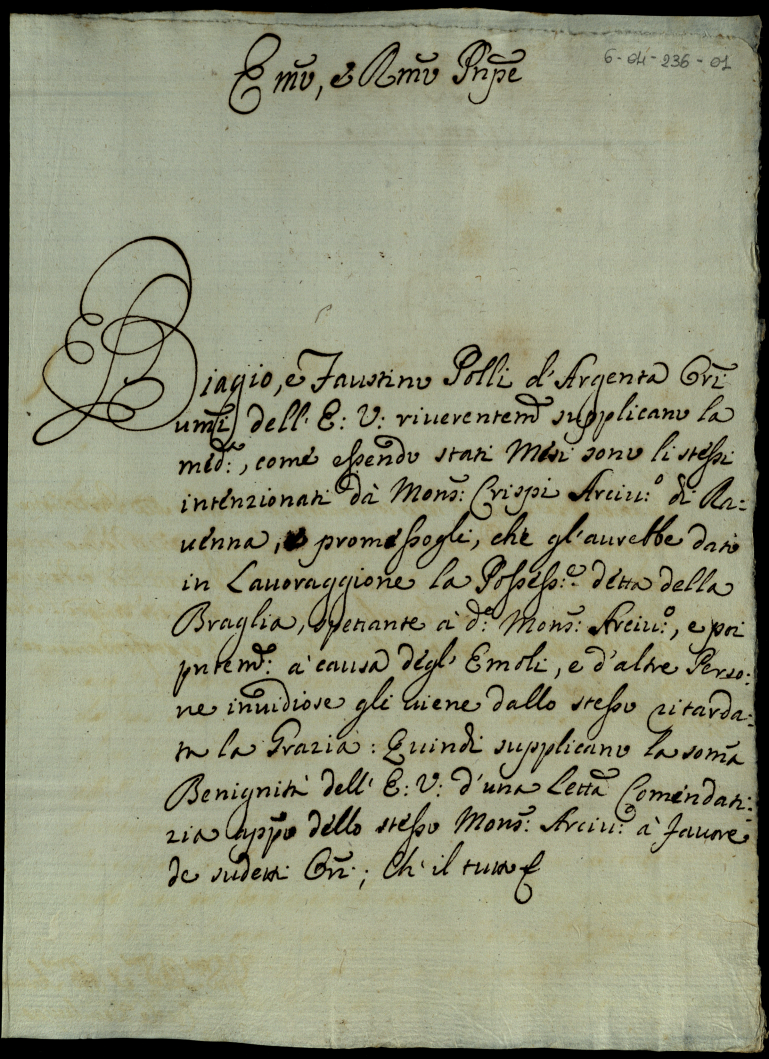 6-04-236-01
Emo, e Rmo Pnpe
Biagio, e Faustino Polli d'Argenta Ori
umi dell' E: V: riuerentemte supplicano la
medа:, come essendo stati Mesi sono li stessi
intenzionati dà Monsr: Crispi Arciuo: di Ra:
uenna, e promessogli, che gl'aurebbe dato
in Lauoraggione la Possesse: detta della
Braglia, spettante à do: Monsr: Arciuo:, e poi
pntemte: à causa degl' Emoli, e d'altre Perso:
ne inuidiose gli uiene dallo stesso ritarda:
ta la Grazia: Quindi supplicano la soma
Benignità dell' E: V: d'una Lettа Comendati:
zia appo dello stesso Monsr: Arciuo: à fauore
de sudetti Ori; Che il tutto